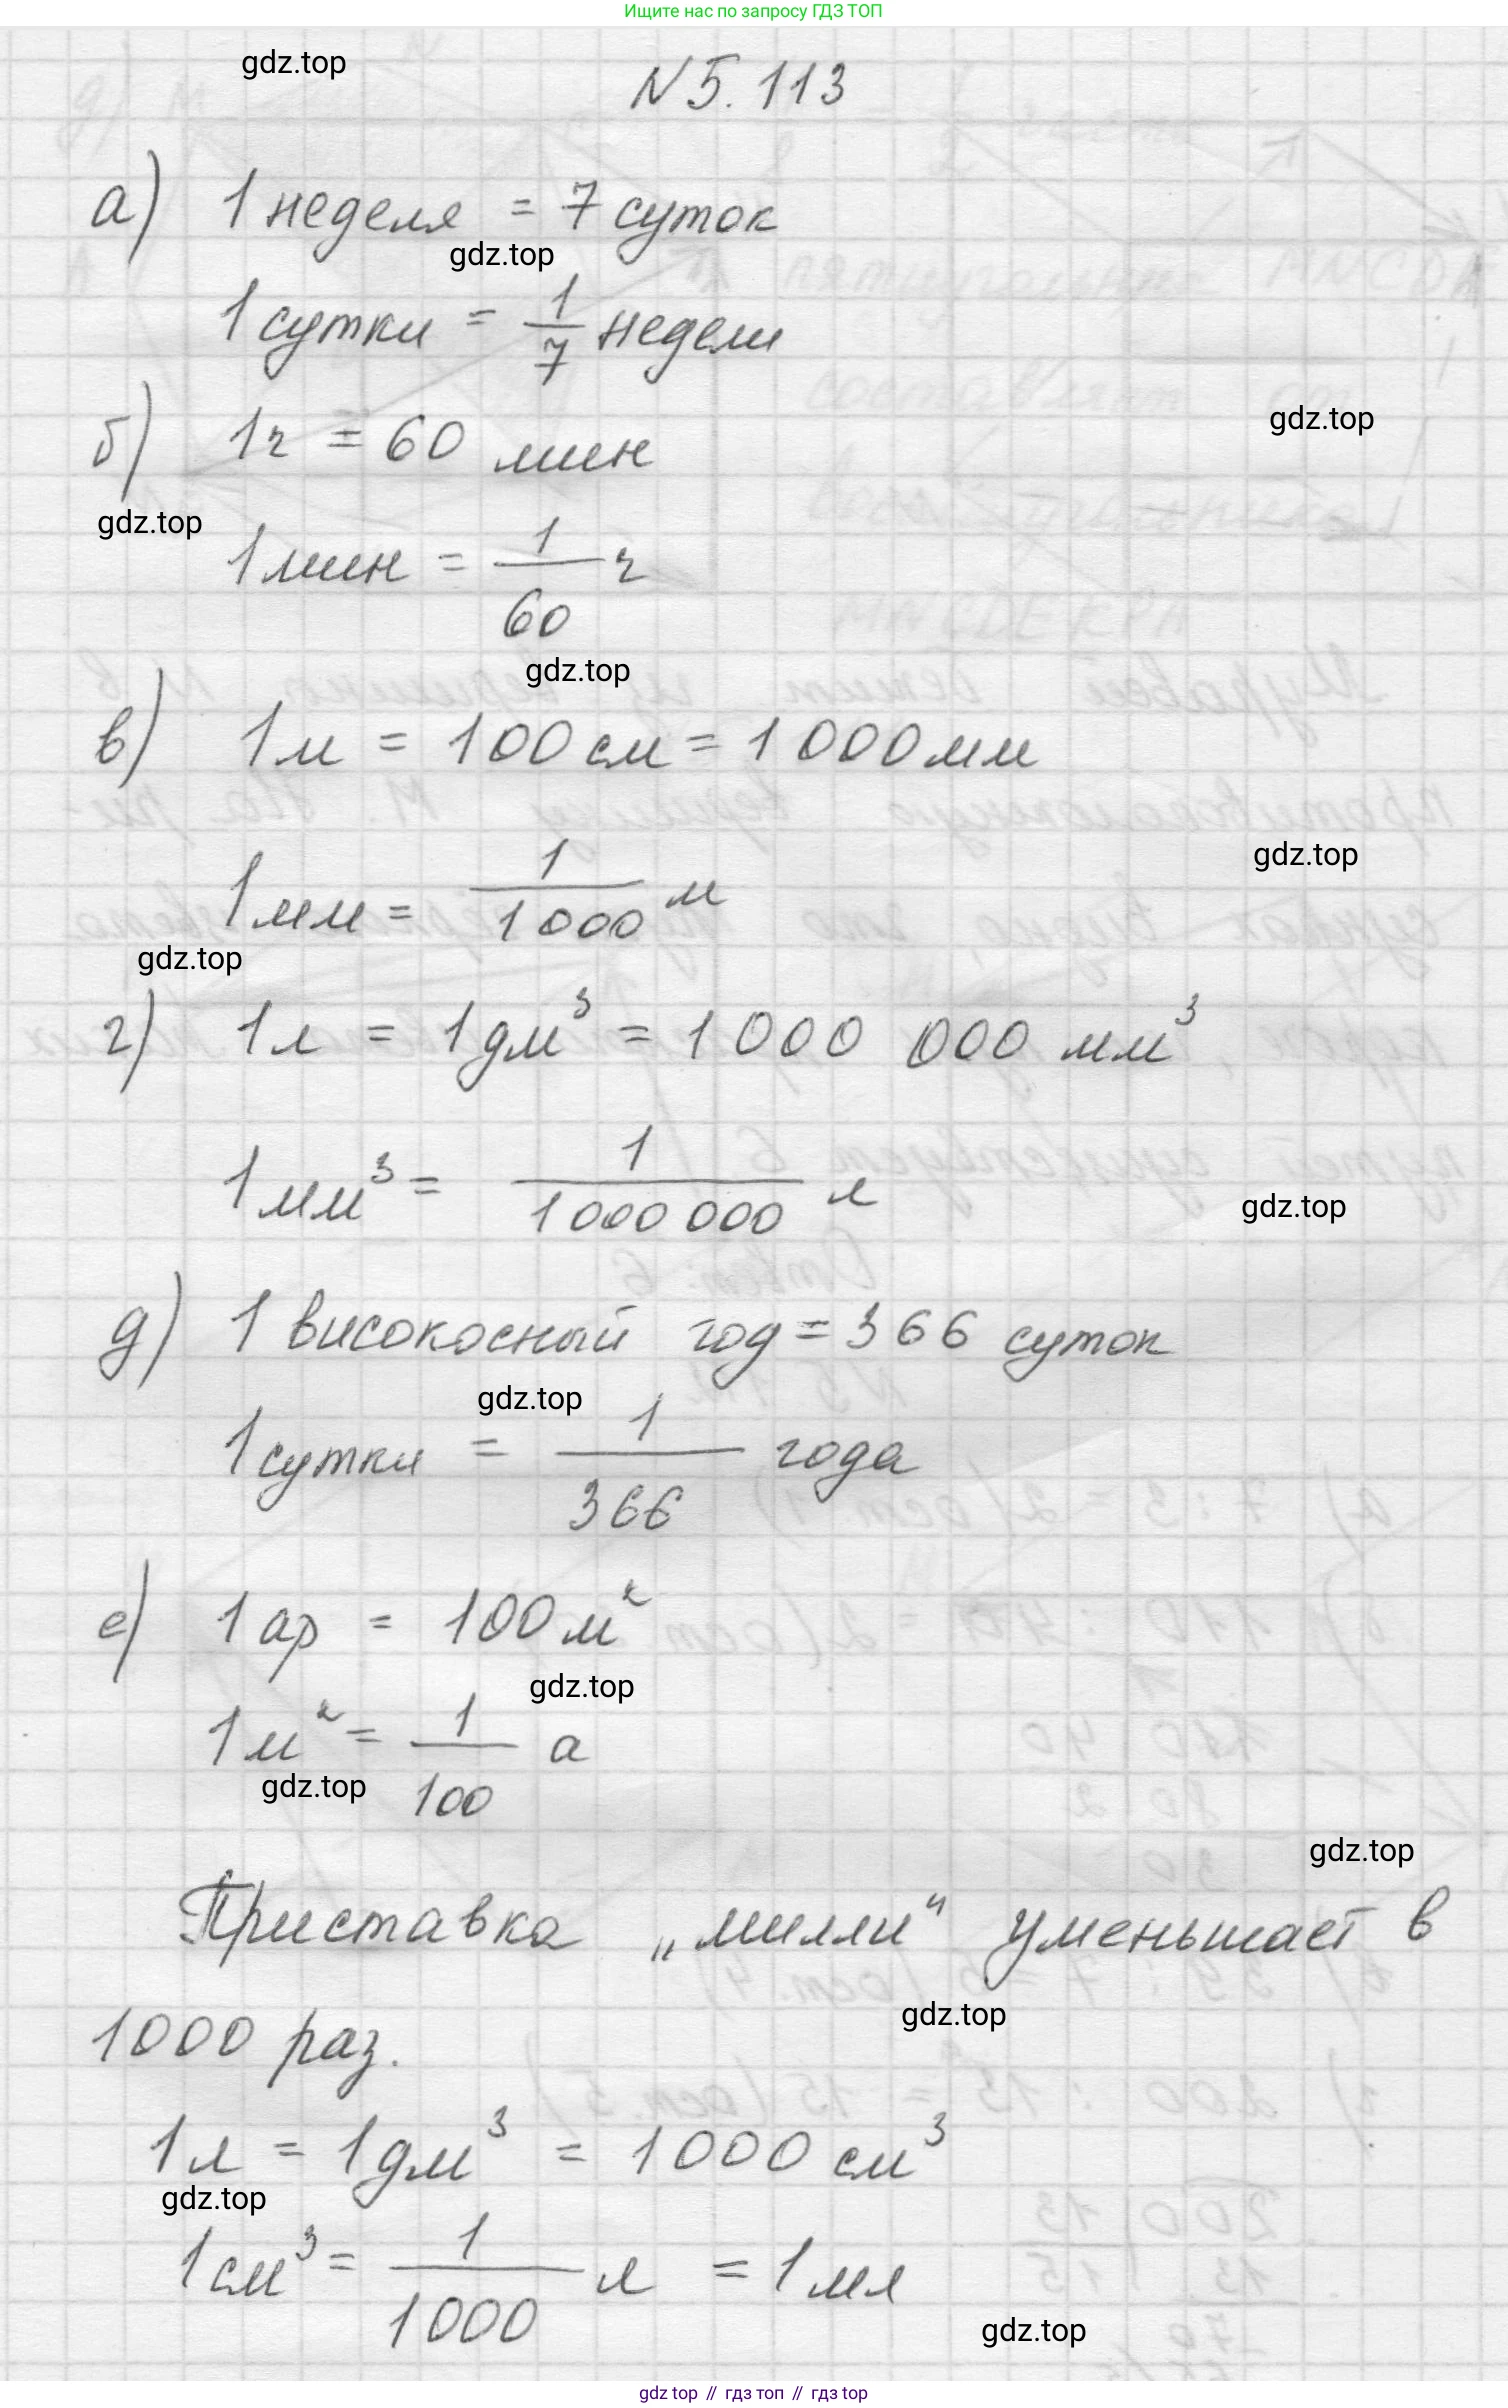 Ищите нас по запросу ГДЗ ТОП
gdz.top
N 5.113
а) 1 неделя = 7 суток
gdz.top
1 сутки = 1/7 недели
gdz.top
б) 1ч = 60 мин
gdz.top
1 мин = 1/60 ч
gdz.top
в) 1 м = 100 см = 1 000 мм
gdz.top
1 мм = 1/1 000 м
gdz.top
г) 1 л = 1 дм³ = 1 000 000 мм³
1 мм³ = 1/1 000 000 л
gdz.top
д) 1 високосный год = 366 суток
gdz.top
1 сутки = 1/366 года
е) 1 ар = 100 м²
gdz.top
1 м² = 1/100 а
gdz.top
gdz.top
Приставка „милли“ уменьшает в
gdz.top
1000 раз.
1 л = 1 дм³ = 1000 см³
gdz.top
1 см³ = 1/1000 л = 1 мл
gdz.top
gdz top // гдз топ // gdz top